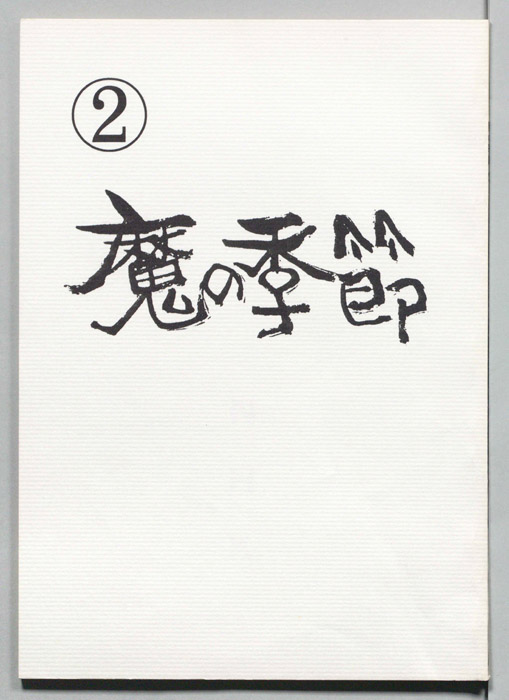 ②
魔の季節